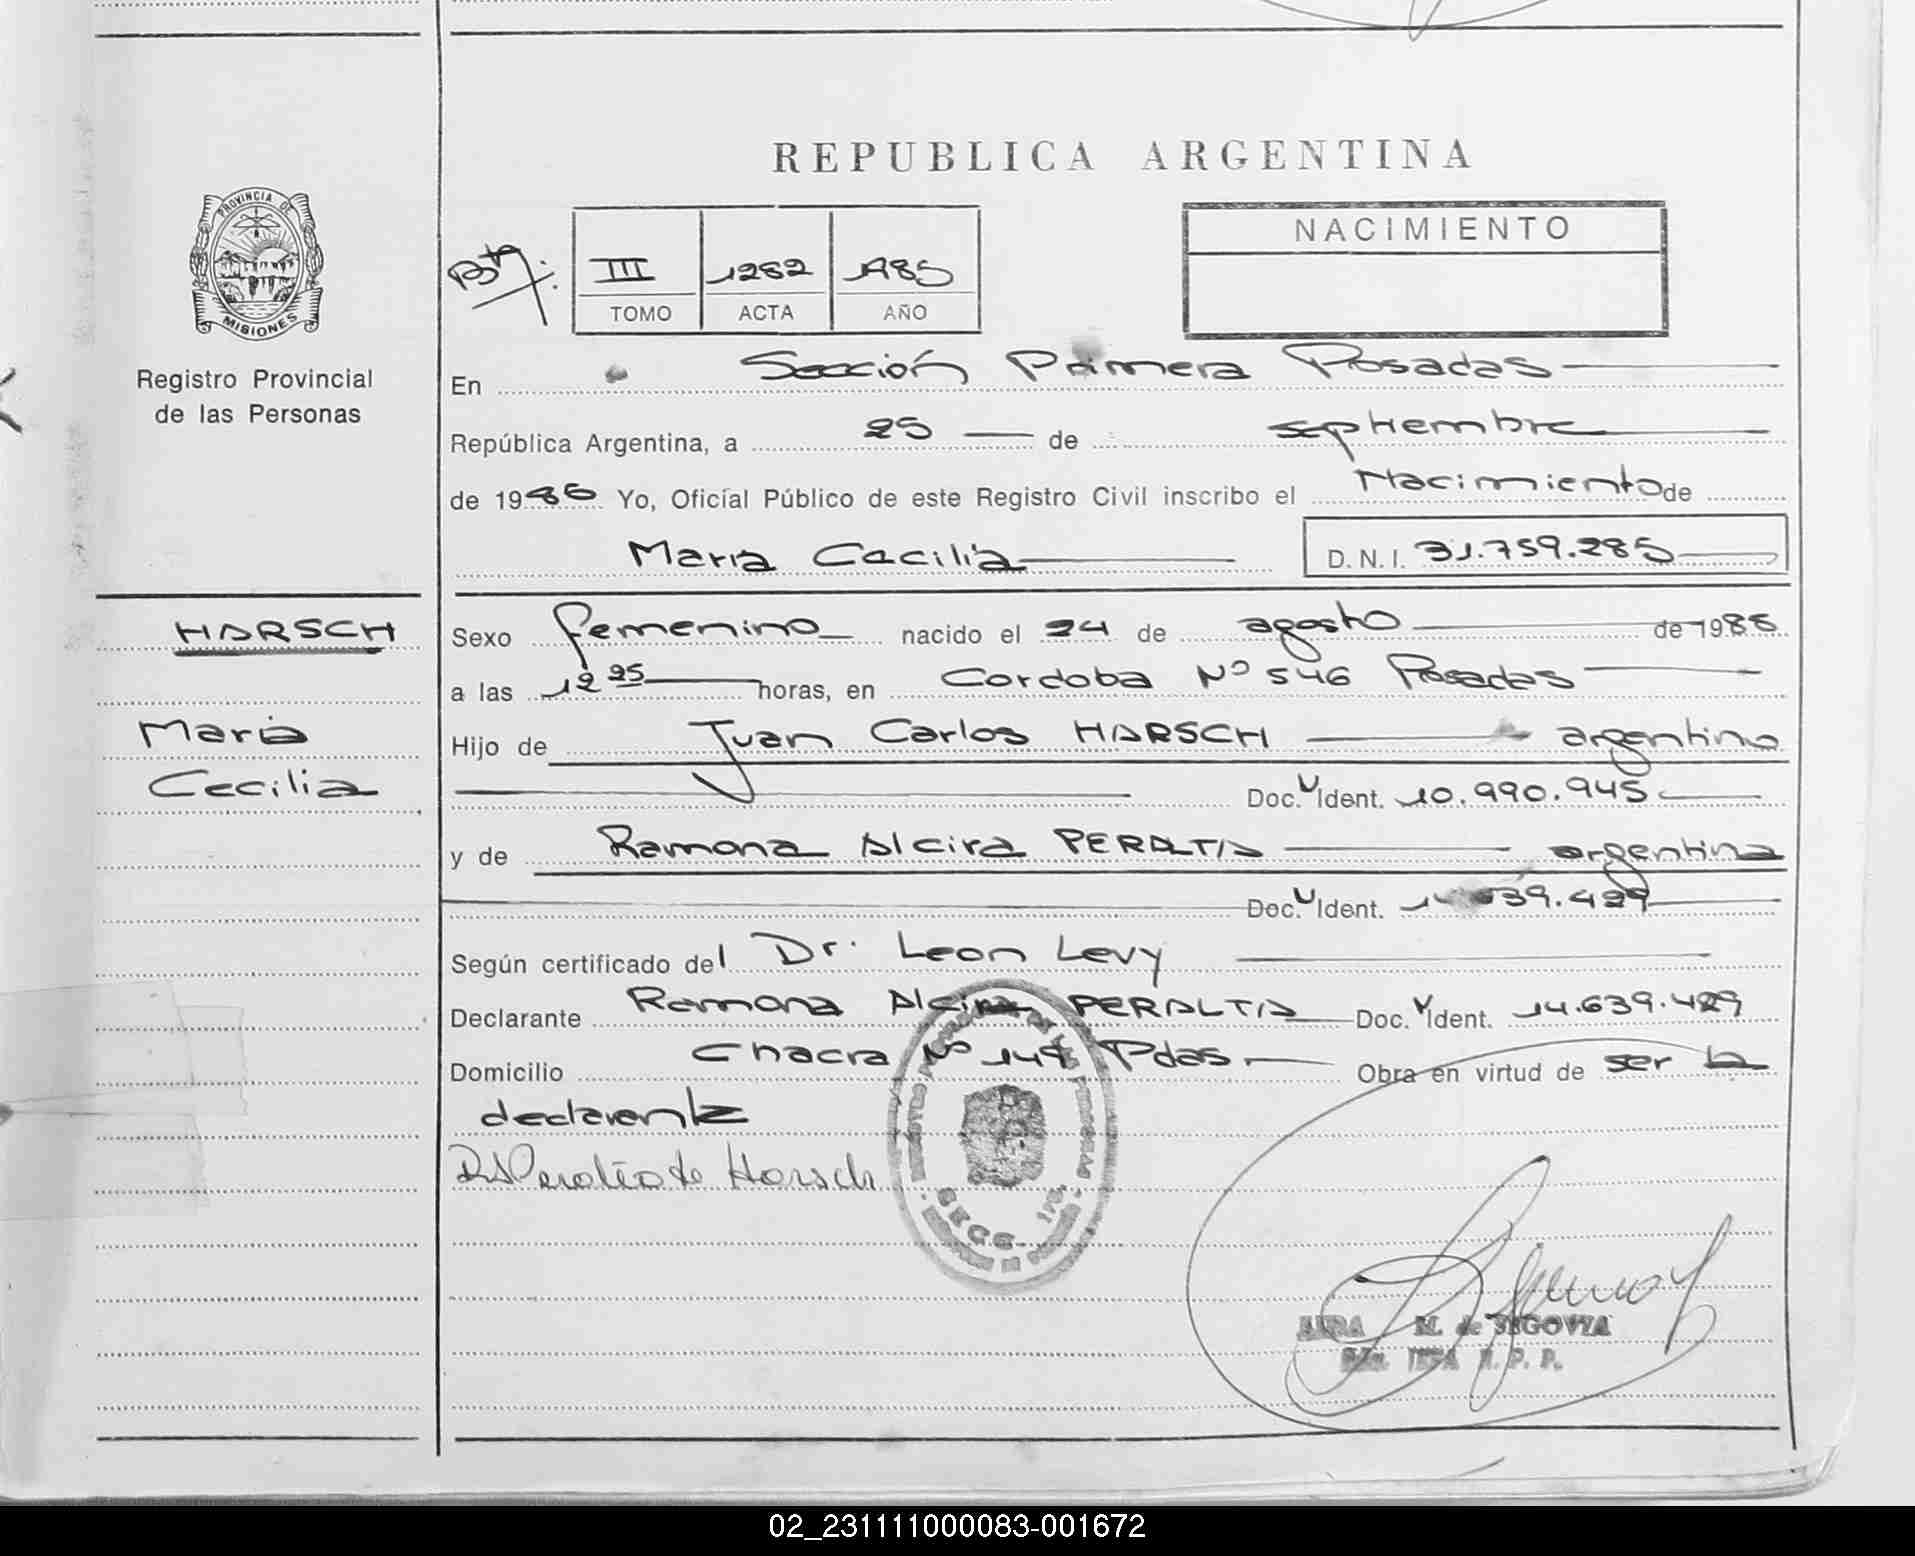 REPUBLICA ARGENTINA
PROVINCIA DE
MISIONES
Registro Provincial
de las Personas
III 1282 1985
TOMO ACTA AÑO
NACIMIENTO
En Sección Primera Posadas
República Argentina, a 25 de septiembre
de 1985 Yo, Oficial Público de este Registro Civil inscribo el Nacimiento de
María Cecilia D. N. I. 31.759.285
HARSCH
María
Cecilia
Sexo femenino nacido el 24 de agosto de 1985
a las 12 25 horas, en Cordoba Nº 546 Posadas
Hijo de Juan Carlos HARSCH argentino
Doc. U Ident. 10.990.945
y de Ramona Alcira PERALTA argentina
Doc. U Ident. 39.429
Según certificado del Dr. Leon Levy
Declarante Ramona Alcira PERALTA Doc. U Ident. 14.639.429
Domicilio Chacra Nº 149 Pdas Obra en virtud de ser la
declarante
Peralta de Harsch
SECC. 1ra.
M. de SEGOVIA
R. P. P.
02_231111000083-001672